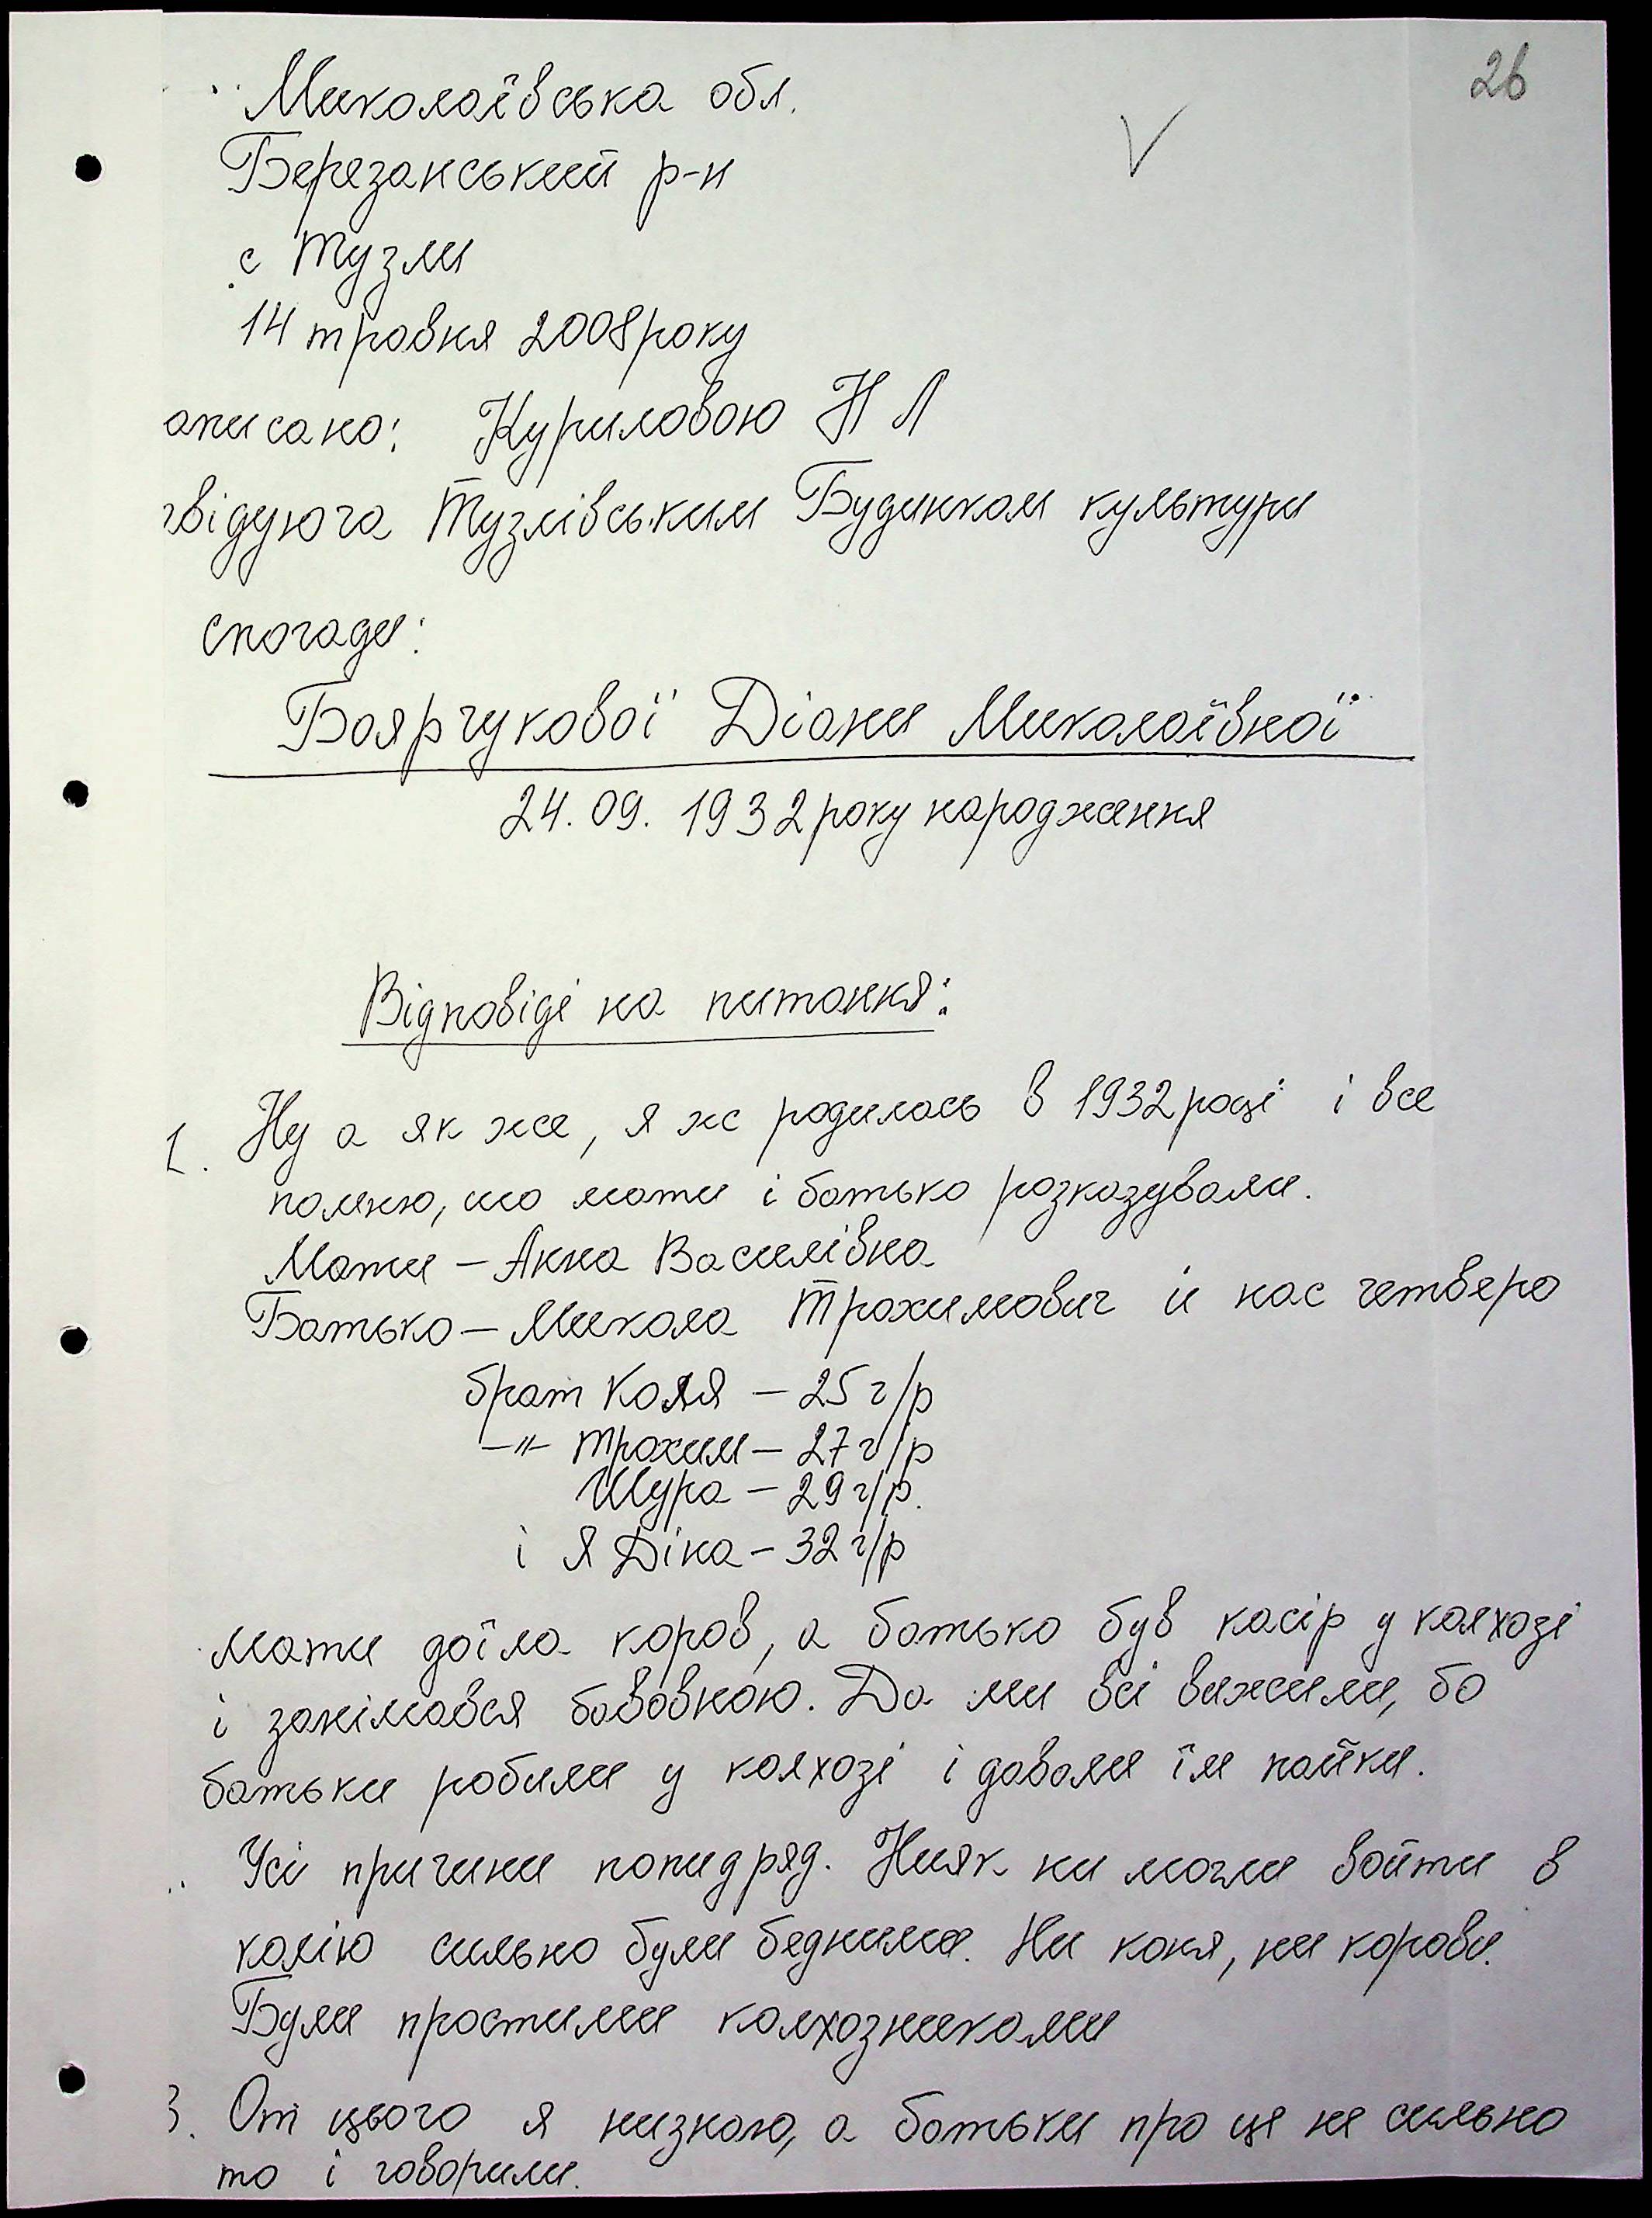 26
Миколаївська обл.
Березанський р-н
с. Тузли
14 травня 2008 року
аписано: Куриловою Н Л
відуюча Тузлівським Будинком культури
спогади:
Боярчукової Діани Миколаївної
24.09.1932 року народження
Відповіді на питання:
1. Ну а як же, я ж родилась в 1932 році і все
помню, шо мати і батько розказували.
Мати – Анна Василівна
Батько – Микола Трохимович и нас четверо
брат Коля – 25 г/р
–"– Трохим – 27 г/р
Шура – 29 г/р.
і Я Діна – 32 г/р
мати доїла коров, а батько був касір у колхозі
і занімався бавовною. Да ми всі вижили, бо
батьки робили у колхозі і давали їм пайки.
Усі причини попидряд. Нияк ни могли войти в
колію сильно були бедними. Ни коня, ни корови.
Були простими колхозниками
3. От цього я низнаю, а батьки про це не сильно
то і говорили.